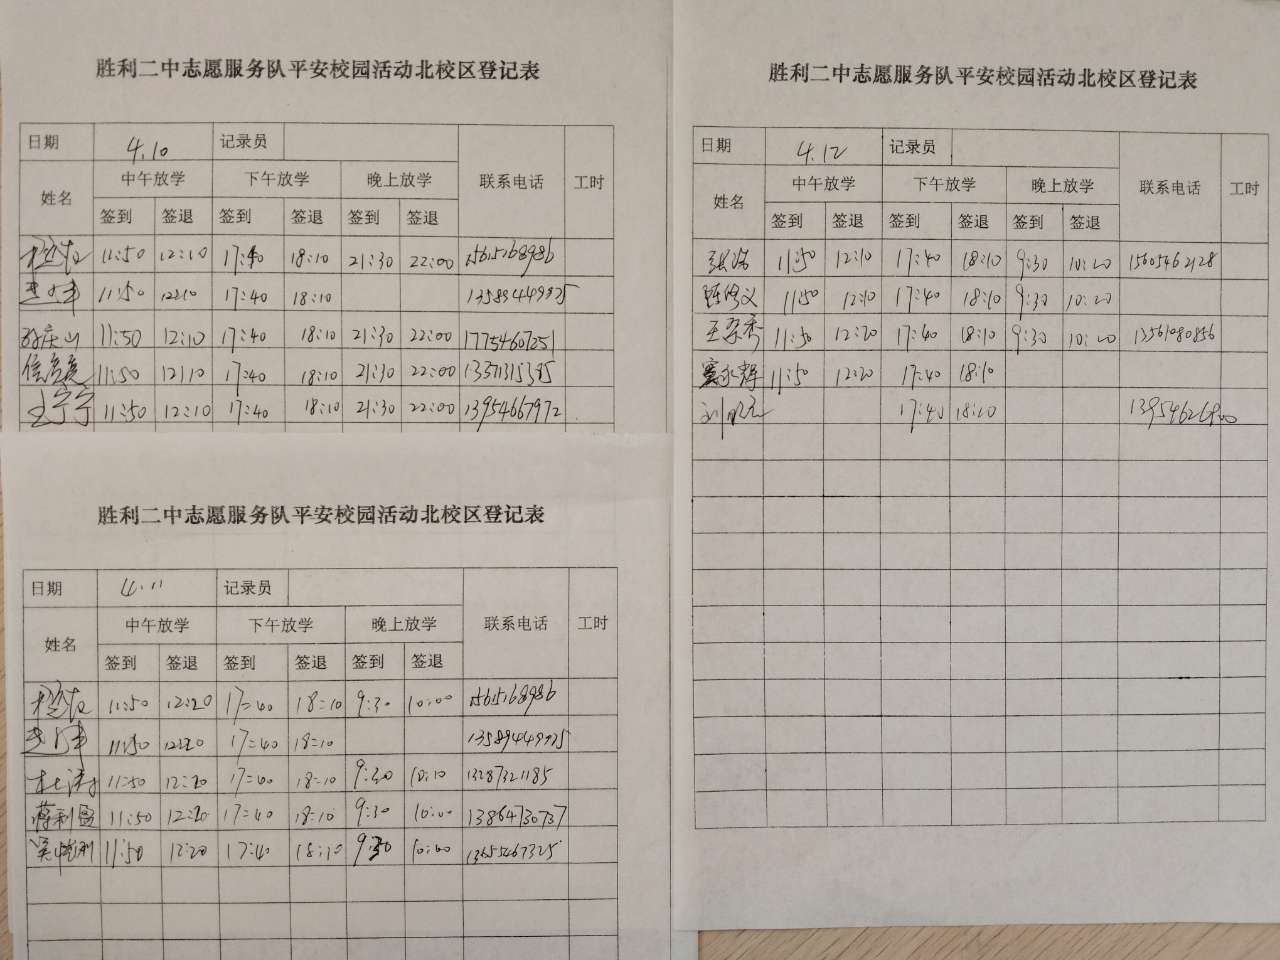 胜利二中志愿服务队平安校园活动北校区登记表
日期 4.10 记录员
姓名 中午放学 下午放学 晚上放学 联系电话 工时
签到 签退 签到 签退 签到 签退
11:50 12:10 17:40 18:10 21:30 22:00 15615268986
11:50 12:10 17:40 18:10 13589449925
孙庆山 11:50 12:10 17:40 18:10 21:30 22:00 17754607251
11:50 12:10 17:40 18:10 21:30 22:00 13371315385
王宁宁 11:50 12:10 17:40 18:10 21:30 22:00 13954667972
胜利二中志愿服务队平安校园活动北校区登记表
日期 4.11 记录员
姓名 中午放学 下午放学 晚上放学 联系电话 工时
签到 签退 签到 签退 签到 签退
11:50 12:20 17:40 18:10 9:30 10:00 15615268986
11:50 12:20 17:40 18:10 13589449925
杜涛 11:50 12:20 17:40 18:10 9:30 10:10 13287321185
蒋利盈 11:50 12:20 17:40 18:10 9:30 10:00 13864730737
11:50 12:20 17:40 18:10 9:30 10:00 13655467325
胜利二中志愿服务队平安校园活动北校区登记表
日期 4.12 记录员
姓名 中午放学 下午放学 晚上放学 联系电话 工时
签到 签退 签到 签退 签到 签退
张浩 11:50 12:10 17:40 18:10 9:30 10:20 15605462128
11:50 12:10 17:40 18:10 9:30 10:20
王翠秀 11:50 12:20 17:40 18:10 9:30 10:20 13561080856
11:50 12:20 17:40 18:10
17:40 18:10